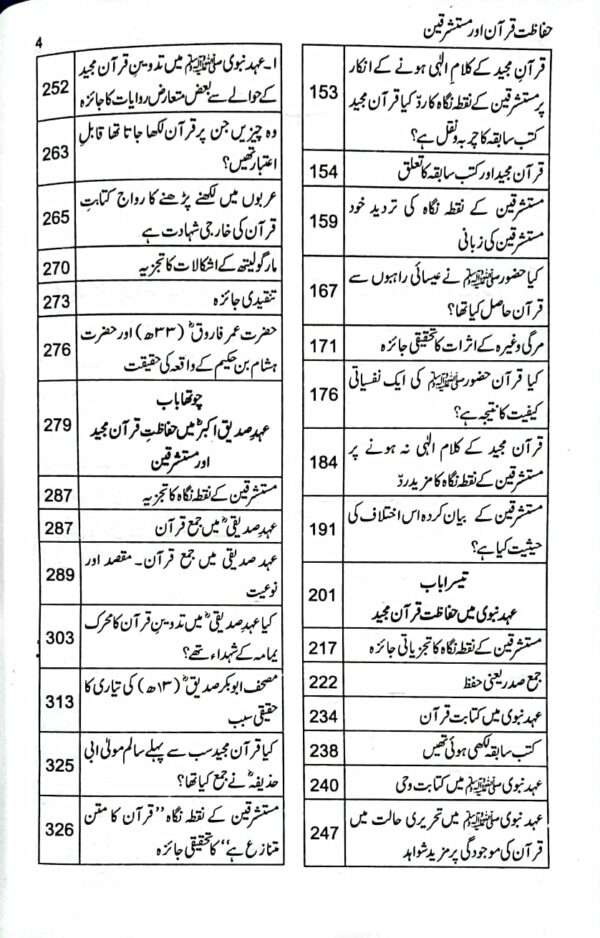 حفاظت قرآن اور مستشرقین
4
قرآن مجید کے کلام الٰہی ہونے کے انکار
پر مستشرقین کے نقطہ نگاہ کا ردّ کیا قرآن مجید
کتب سابقہ کا چربہ و نقل ہے؟
153
قرآن مجید اور کتب سابقہ کا تعلق
154
مستشرقین کے نقطہ نگاہ کی تردید خود
مستشرقین کی زبانی
159
کیا حضور ﷺ نے عیسائی راہبوں سے
قرآن حاصل کیا تھا؟
167
مرگی وغیرہ کے اثرات کا تحقیقی جائزہ
171
کیا قرآن حضور ﷺ کی ایک نفسیاتی
کیفیت کا نتیجہ ہے؟
176
قرآن مجید کے کلام الٰہی نہ ہونے پر
مستشرقین کے نقطہ نگاہ کا مزید ردّ
184
مستشرقین کے بیان کردہ اس اختلاف کی
حیثیت کیا ہے؟
191
تیسرا باب
عہد نبوی میں حفاظت قرآن مجید
201
مستشرقین کے نقطہ نگاہ کا تجزیاتی جائزہ
217
جمع صدر یعنی حفظ
222
عہد نبوی میں کتابت قرآن
234
کتب سابقہ لکھی ہوئی تھیں
238
عہد نبوی ﷺ میں کتابت وحی
240
عہد نبوی ﷺ میں تحریری حالت میں
قرآن کی موجودگی پر مزید شواہد
247
ا۔ عہد نبوی ﷺ میں تدوین قرآن مجید
کے حوالے سے بعض متعارض روایات کا جائزہ
252
وہ چیزیں جن پر قرآن لکھا جاتا تھا قابلِ
اعتبار تھیں؟
263
عربوں میں لکھنے پڑھنے کا رواج کتابتِ
قرآن کی خارجی شہادت ہے
265
مارگولیتھ کے اشکالات کا تجزیہ
270
تنقیدی جائزہ
273
حضرت عمر فاروقؓ (۳۳ھ) اور حضرت
ہشام بن حکیم کے واقعہ کی حقیقت
276
چوتھا باب
عہدِ صدیق اکبرؓ میں حفاظتِ قرآن مجید
اور مستشرقین
279
مستشرقین کے نقطہ نگاہ کا تجزیہ
287
عہدِ صدیقیؓ میں جمع قرآن
287
عہد صدیقی میں جمع قرآن۔ مقصد اور
نوعیت
289
کیا عہدِ صدیقیؓ میں تدوین قرآن کا محرک
یمامہ کے شہداء تھے؟
303
مصحف ابوبکر صدیقؓ (۱۳ھ) کی تیاری کا
حقیقی سبب
313
کیا قرآن مجید سب سے پہلے سالم مولیٰ ابی
حذیفہؓ نے جمع کیا تھا؟
325
مستشرقین کے نقطہ نگاہ ”قرآن کا متن
متنازع ہے“ کا تحقیقی جائزہ
326